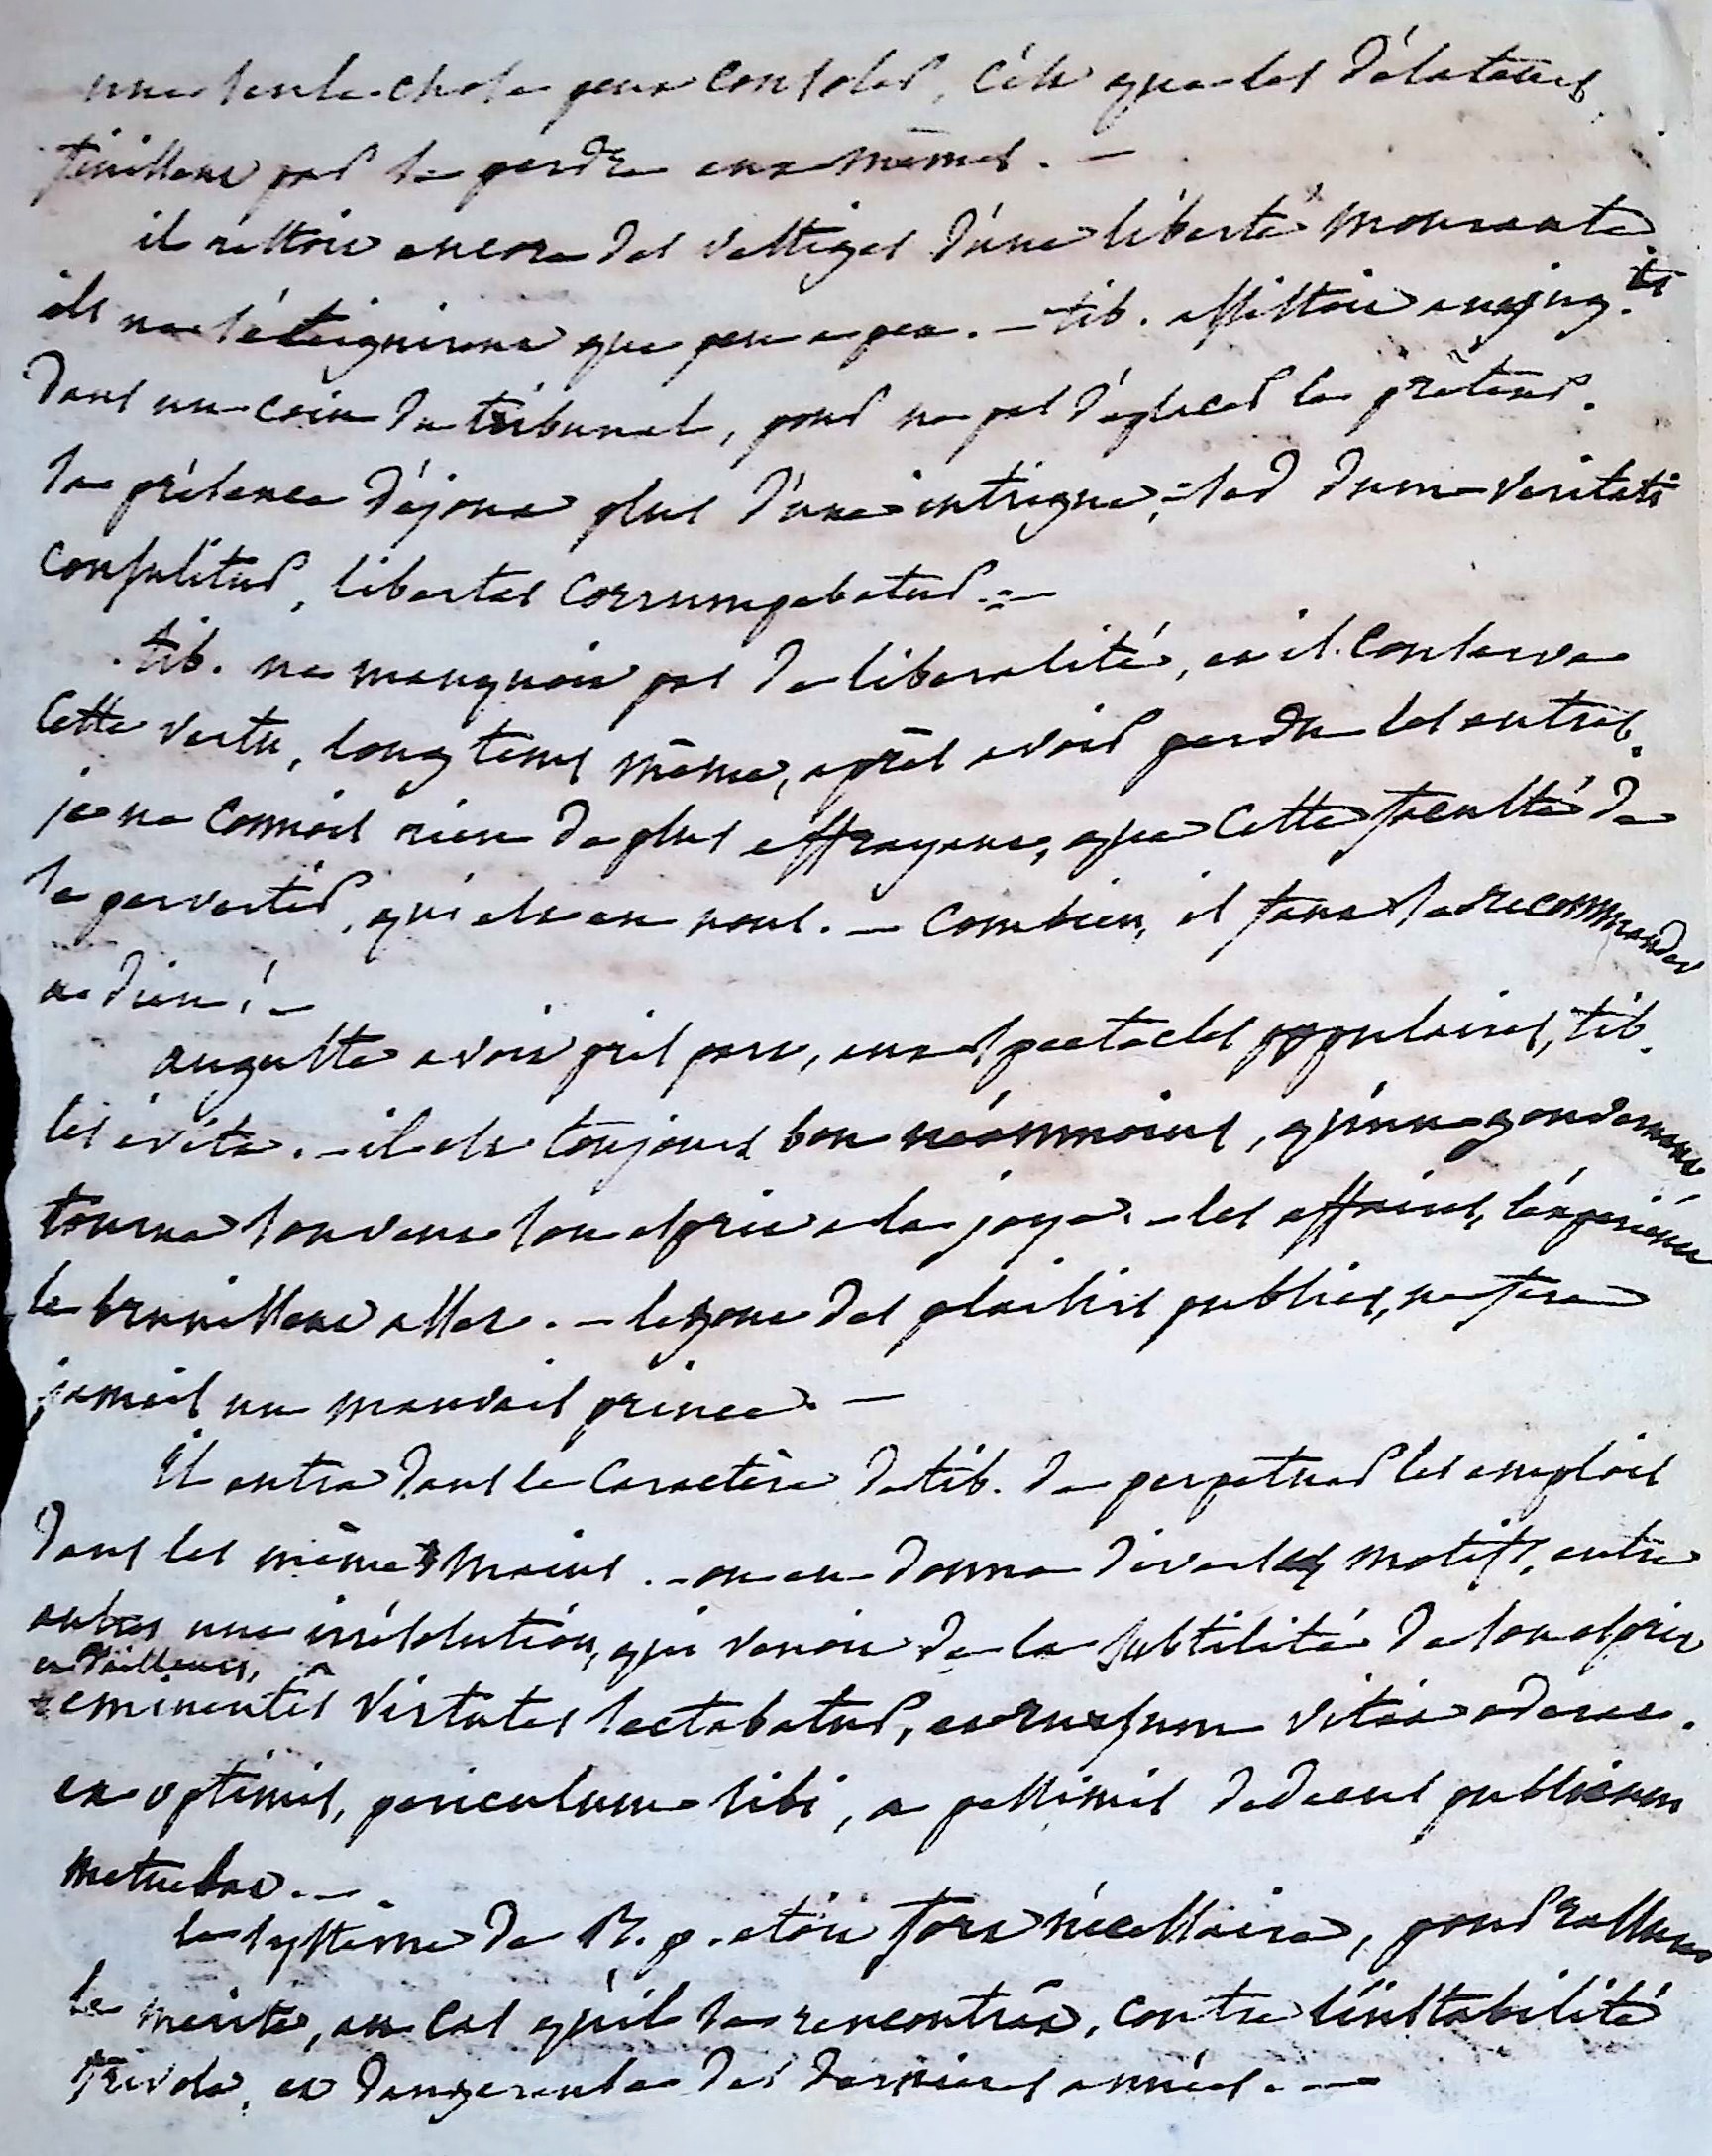 une seule chose peut consoler, c'est que les délateurs
finissent par se perdre eux mêmes. —
il restoit encore des vestiges d'une liberté mourante.
ils ne s'éteignirent que peu a peu. — tib. assistoit aux jug.ts
dans un coin du tribunal, pour ne pas déplacer le préteur.
sa présence déjoua plus d'une intrigue; = sed dum veritati
consulitur, libertas corrumpebatur. = —
tib. ne manquoit pas de liberalité, et il conserva
cette vertu, long tems même, après avoir perdu les autres.
je ne connois rien de plus effrayant, que cette faculté de
se pervertir, qui est en nous. — combien, il faut se recommander
a dieu! —
auguste avoit pris part, aux spectacles populaires, tib.
les évita. — il est toujours bon néanmoins, qu'un gouvernant
tourne souvent son esprit a la joye. — les affaires, l'expérience
le brouillent assez. — le gout des plaisirs publics, ne fera
jamais un mauvais prince. —
Il entra dans le caractère de tib. de perpetuer les emplois
dans les mêmes mains. — on en donna divers motifs, entre
autres une irrésolution, qui venoit de la subtilité de son esprit
et d'ailleurs,
eminentes virtutes sectabatur, et rursum vitia oderat.
ex optimis, periculum sibi, a pessimis dedecus publicum
metuebat. —
le système de M. p. etoit fort nécessaire, pour rassurer
le merite, en cas qu'il se rencontrât, contre l'instabilité
frivole, et dangereuse des dernieres années. —